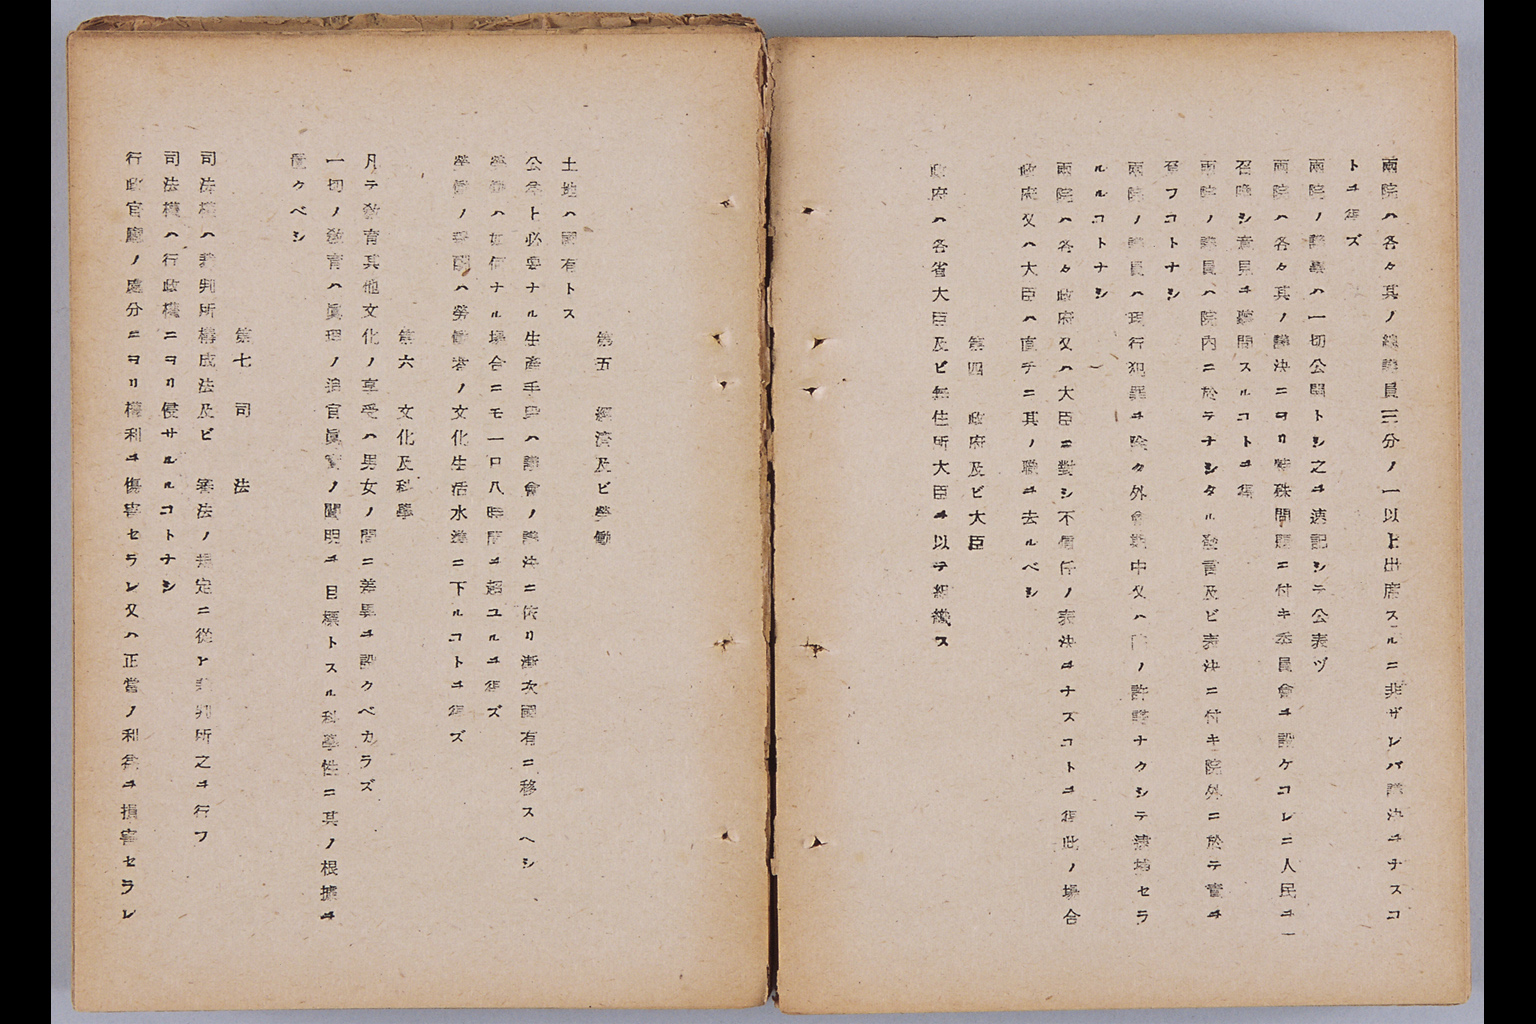 兩院ハ各々其ノ總議員三分ノ一以上出席スルニ非ザレバ議決ヲナスコ
トヲ得ズ
兩院ノ議事ハ一切公開トシ之ヲ速記シテ公表ヅ
兩院ハ各々其ノ議決ニヨリ特殊問題ニ付キ委員會ヲ設ケコレニ人民ヲ
召喚シ意見ヲ聽問スルコトヲ得
兩院ノ議員ハ院内ニ於テナシタル發言及ビ表決ニ付キ院外ニ於テ責ヲ
負フコトナシ
兩院ノ議員ハ現行犯罪ヲ除ク外會期中又ハ院ノ許諾ナクシテ逮捕セラ
ルルコトナシ
兩院ハ各々政府又ハ大臣ニ對シ不信任ノ表決ヲナスコトヲ得此ノ場合
政府又ハ大臣ハ直チニ其ノ職ヲ去ルベシ
第四 政府及ビ大臣
政府ハ各省大臣及ビ無任所大臣ヲ以テ組織ス
第五 經濟及ビ勞働
土地ハ國有トス
公益上必要ナル生產手段ハ議會ノ議決ニ依リ漸次國有ニ移スヘシ
勞働ハ如何ナル場合ニモ一日八時間ヲ超ユルヲ得ズ
勞働ノ報酬ハ勞働者ノ文化生活水準ニ下ルコトヲ得ズ
第六 文化及科學
凡テ敎育其他文化ノ享受ハ男女ノ間ニ差異ヲ設クベカラズ
一切ノ敎育ハ眞理ノ追官眞實ノ闡明ヲ目標トスル科學性ニ其ノ根據ヲ
置クベシ
第七 司 法
司法權ハ裁判所構成法及ビ 審法ノ規定ニ從ヒ裁判所之ヲ行フ
司法權ハ行政權ニヨリ侵サルルコトナシ
行政官廳ノ處分ニヨリ權利ヲ傷害セラレ又ハ正當ノ利益ヲ損害セラレ